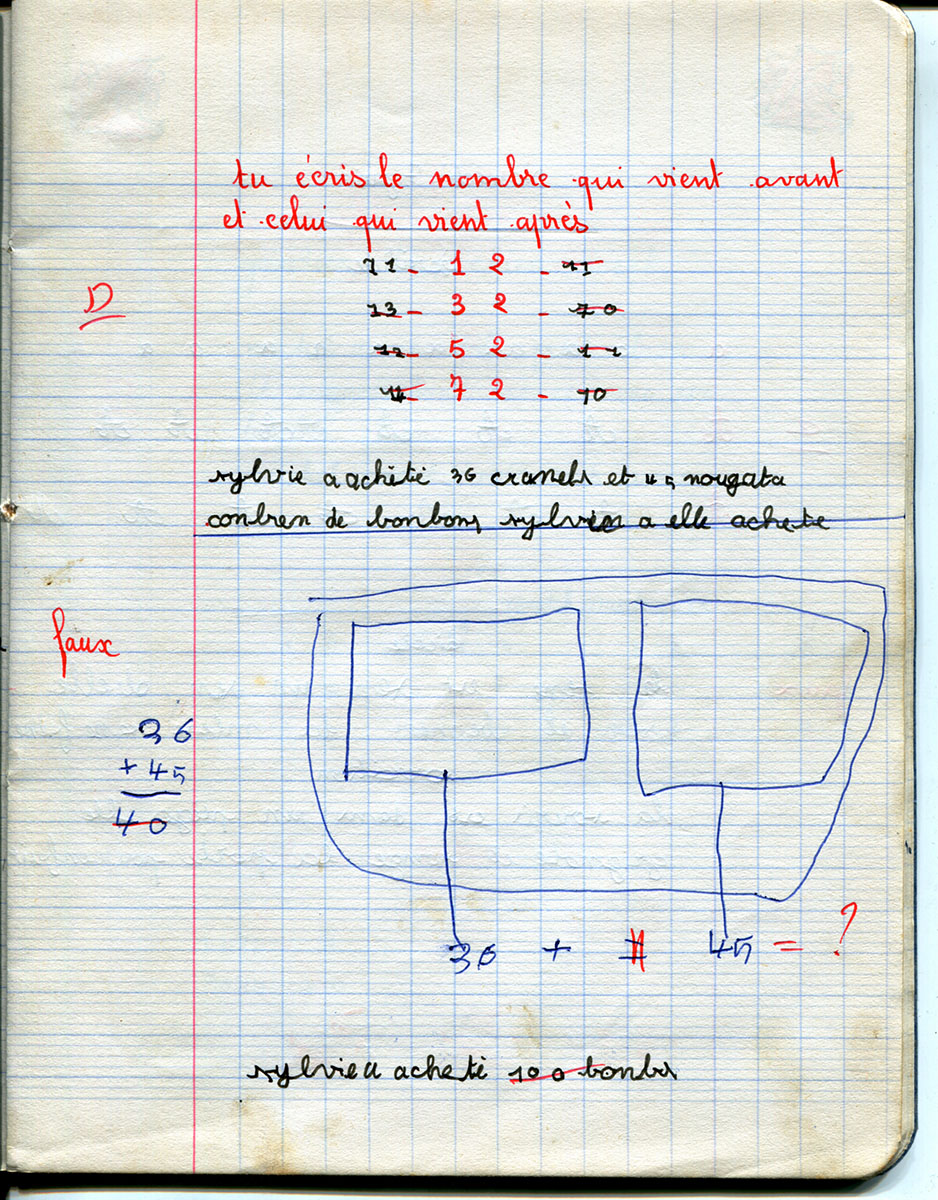 tu écris le nombre qui vient avant
et celui qui vient après
11 - 12 - 11
D
13 - 32 - 70
12 - 52 - 11
14 - 72 - 10
sylvie a achétié 36 cramels et 45 nougata
conbren de bonbons sylvien a elle achete
faux
36
+ 45
40
36 + 45 = ?
sylvie a acheté 100 bonbs